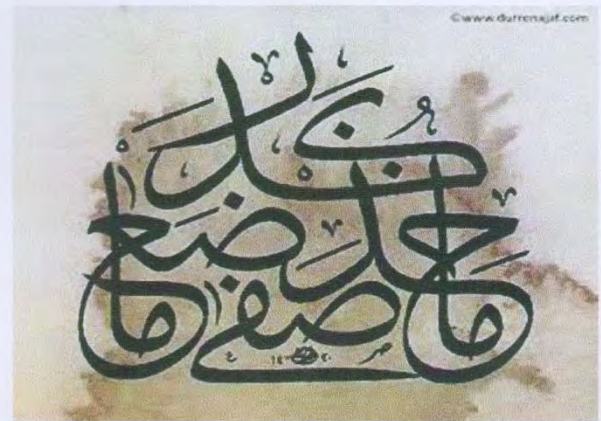 ©www.durrenajaf.com
خذ ما صفى دع ما كدر